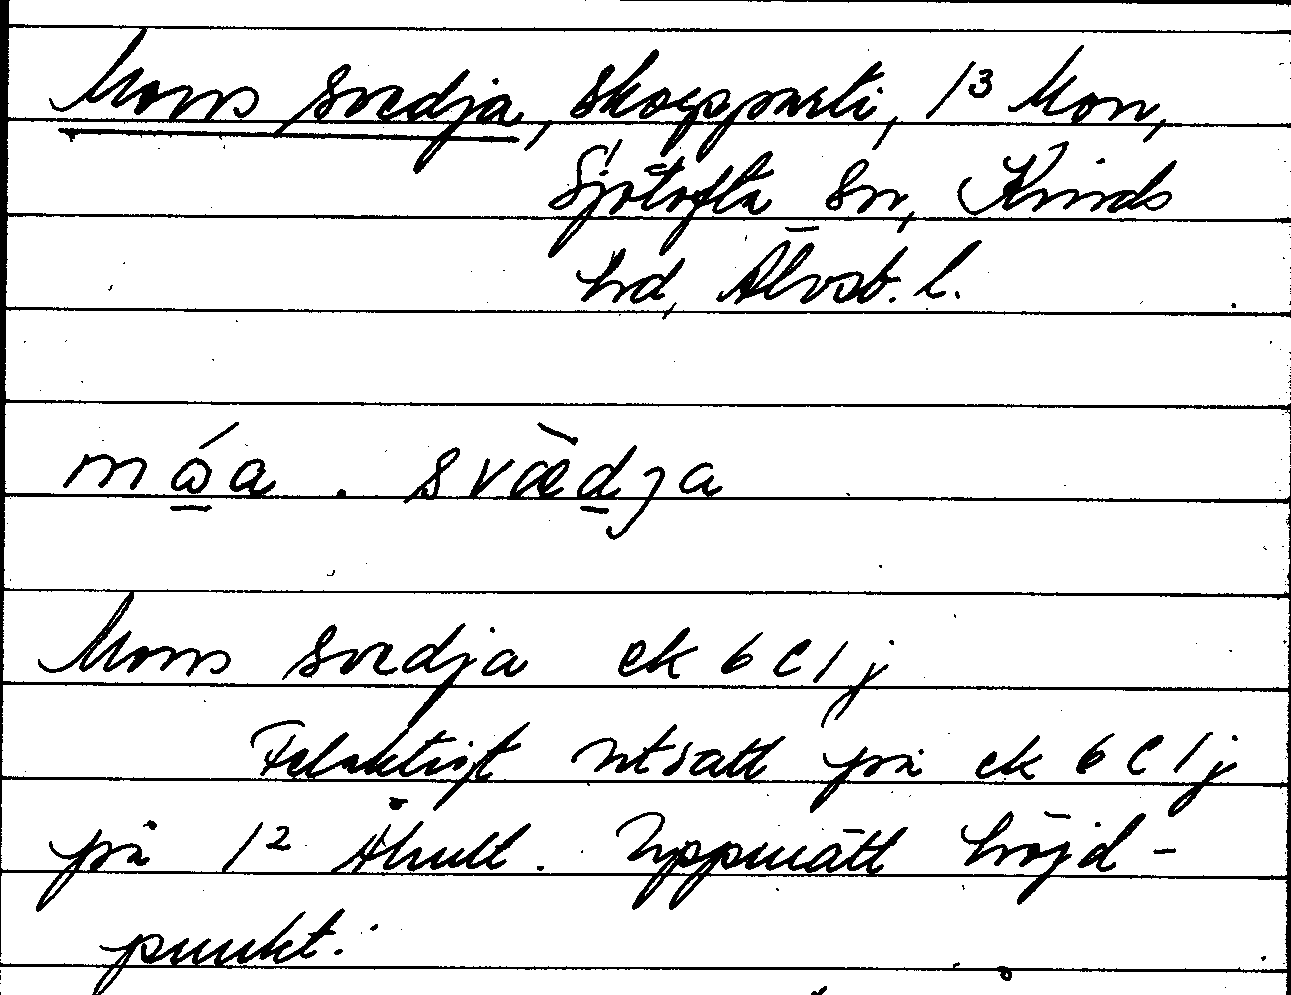 Mons svedja, skogsparti, 1³ Mon,
Sjötofta sn, Kinds
hd, Älvsb. l.
mɷ́a . svæ̀dja
Mons svedja ek 6 C 1 j
Felaktigt utsatt på ek 6 C 1 j
på 1² Åhult. Uppmätt höjd-
punkt.